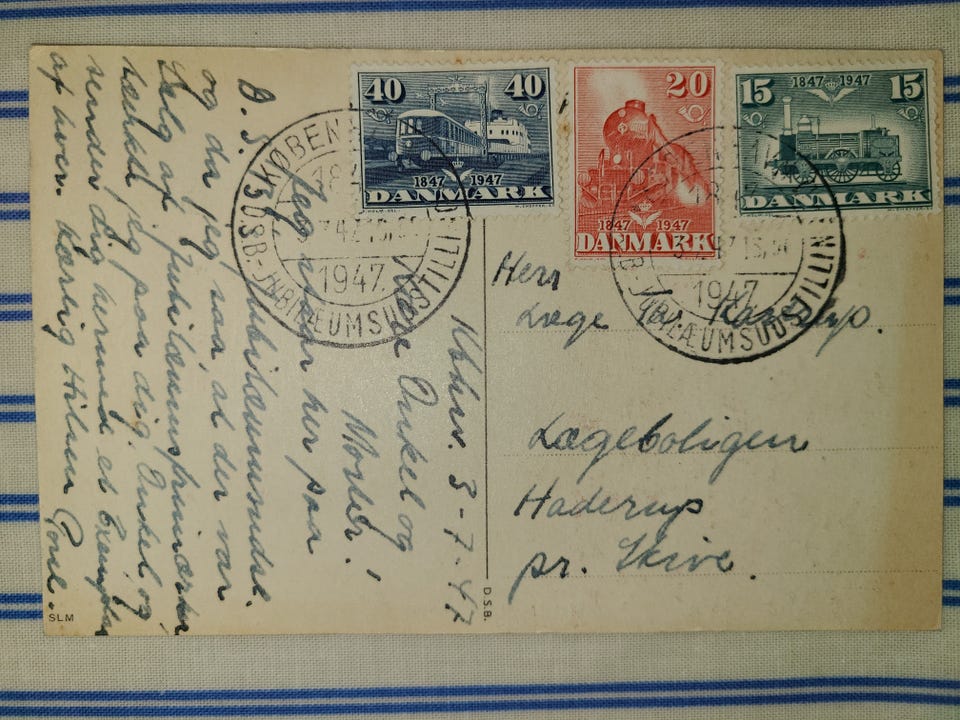 40 40
1847 1947
DANMARK
20
1847 1947
DANMARK
1847 1947
15 15
DANMARK
KØBENHAVN
1847
1947
DSB-JUBILÆUMSUDSTILLING
1947
DSB-JUBILÆUMSUDSTILLIN
Kbhv. 3-7-47
Kære Onkel og
Moster!
Jeg staar her paa
D.S.B. Jubilæumsudst.
og da jeg saa, at der var
Salg af Jubilæumsfrimærker,
tænkte jeg paa dig. Onkel og
sender dig hermed et Exemplar
af hver. Kærlig Hilsen Poul.
Herr
Læge Karstrup.
Lægeboligen
Haderup
pr. Skive.
D.S.B.
SLM